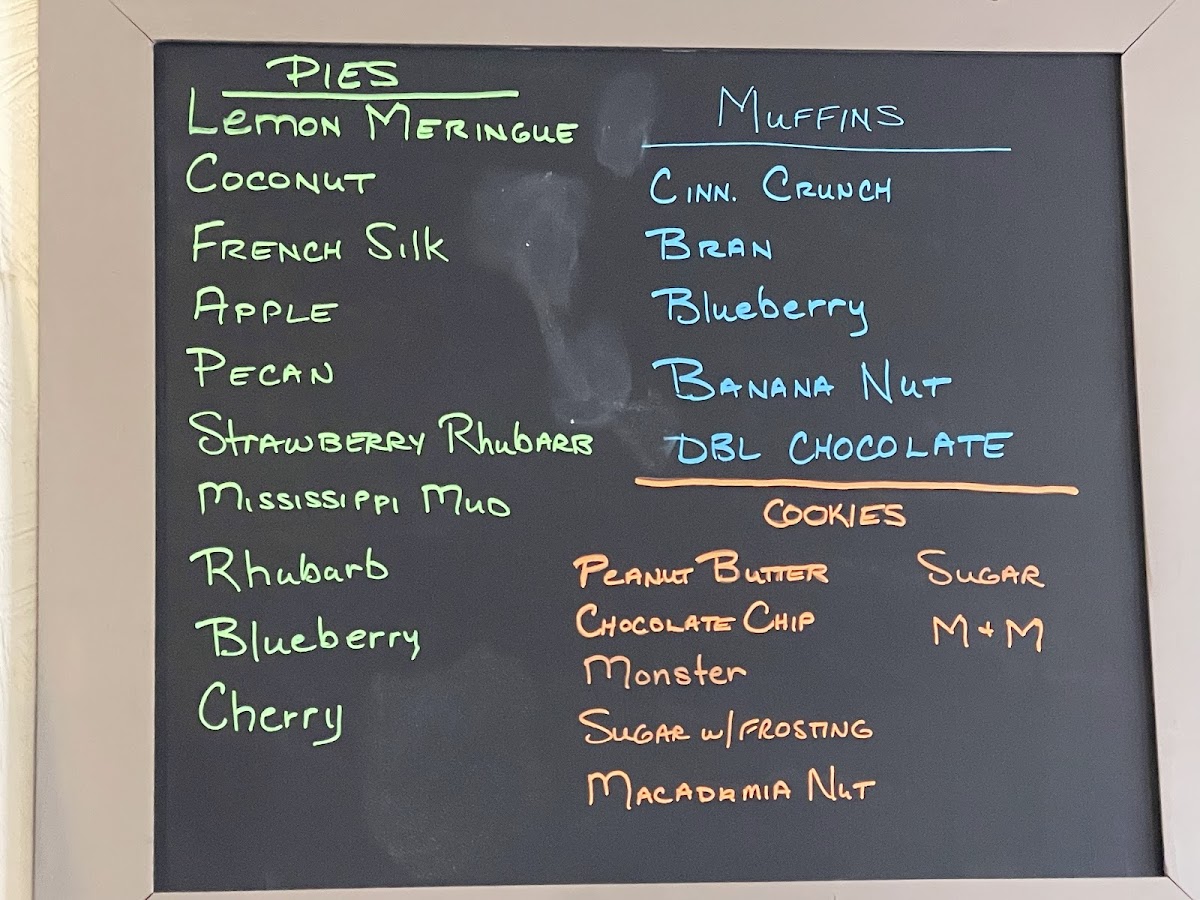 PIES
Lemon MERINGUE
COCONUT
FRENCH Silk
APPLE
PECAN
STRAWBERRY RhubARB
MISSISSIPPI MUD
Rhubarb
Blueberry
Cherry
MUFFINS
CINN. CRUNCH
BRAN
Blueberry
BANANA NUT
DBL CHOCOLATE
COOKIES
PEANUT BUTTER
CHOCOLATE CHIP
Monster
SUGAR w/FROSTING
MACADAMIA NUT
SUGAR
M + M